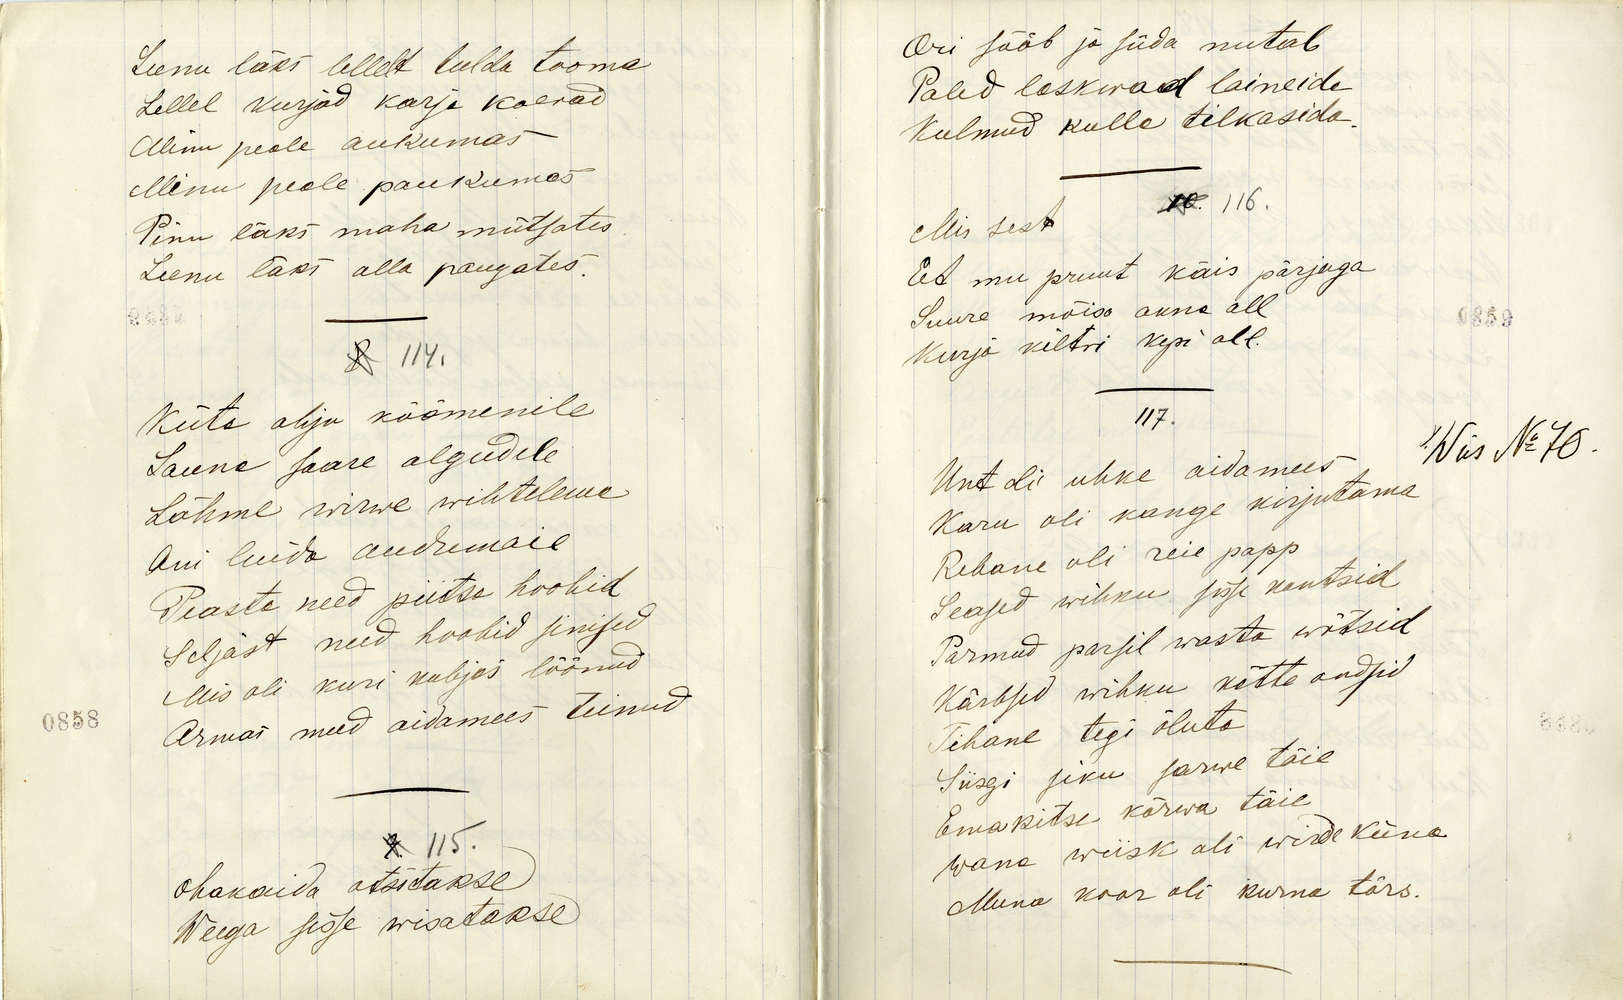 Leenu läks lellelt tulda tooma
Lellel kurjad karja koerad
Minu peale aukumas
Minu peale paukumas
Pinu läks maha mütsates
Leenu läks alla paugates.
8. 114.
Küta ahju köömenile
Sauna saare algudele
Lähme wirwe wihtelema
Ani luida audumaie
Peasta need piitsa hoobid
Seljäst need hoobid sinised
Mis oli kuri kubjas löönud
Armas meed aidamees teinud
0858
9. 115.
Ohakaida otsitakse
Weega sisse wisatakse
Ori sööb ja süda nutab
Paled laskwad laineida
Kulmud kulla tilkasida.
10. 116.
Mis sest
Et mu pruut käis pärjaga
Suure mõisa auna all
Kurja kiltri kepi all.
0859
117.
Wiis № 70.
Unt oli uhke aidamees
Karu oli kange kirjutama
Rebane oli reie papp
Seased wihku sisse kantsid
Parmud parsil wasta wõtsid
Kärbsed wihku kätte andsid
Tihane tegi õluta
Siisgi siku sarwe täie
Emakitse kõrwa täie
Wana wiisk oli wirde küna
Muna koor oli kurna tõrs.